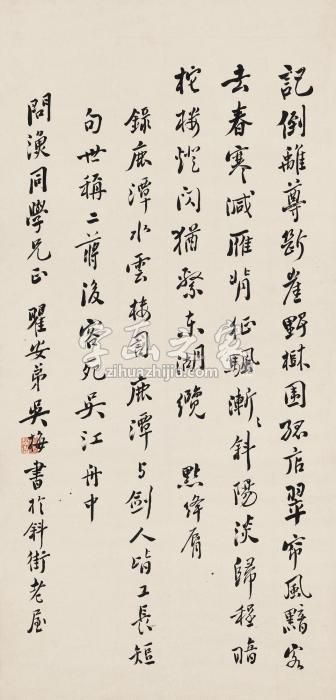 記倒離尊斷崖野樾圍孤店翠帘風黯客
去春寒減雁背征颿漸漸斜陽淡歸程暗
柁樓燈閃猶繫東湖纜 點絳脣
錄鹿潭水雲樓詞鹿潭與劍人皆工長短
句世稱二蔣後客死吳江舟中
問漁同學兄正 瞿安弟吳梅書於斜街老屋
字画之家
zihuazhijia.com